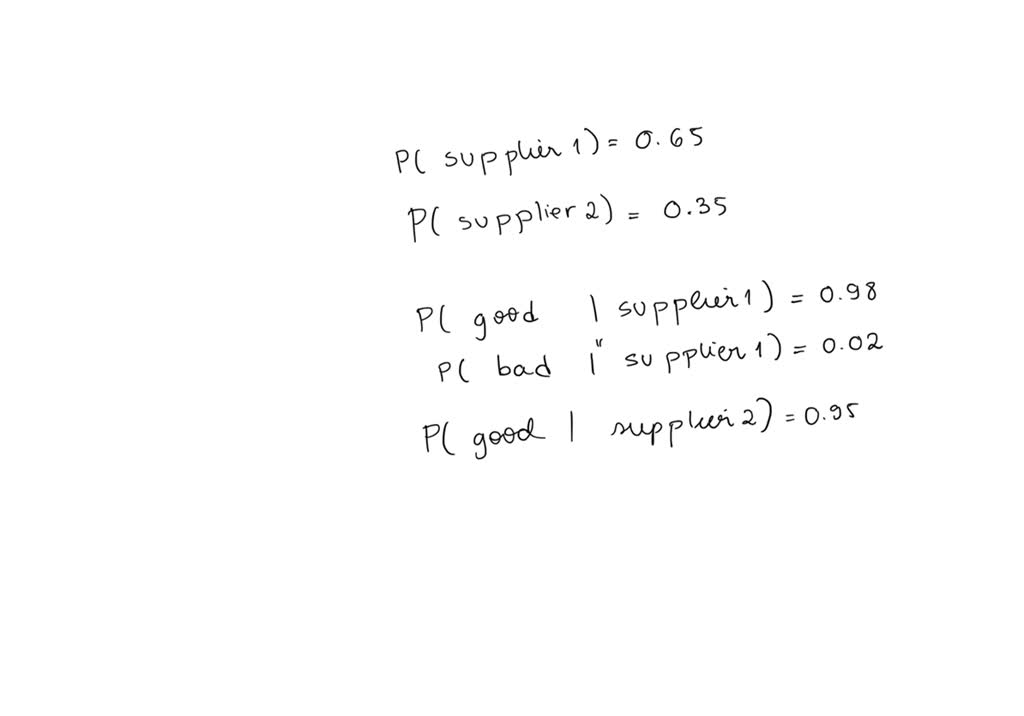 P( supplier 1) = 0.65
P( supplier 2) = 0.35
P( good | supplier 1) = 0.98
P( bad |" supplier 1) = 0.02
P( good | supplier 2) = 0.95